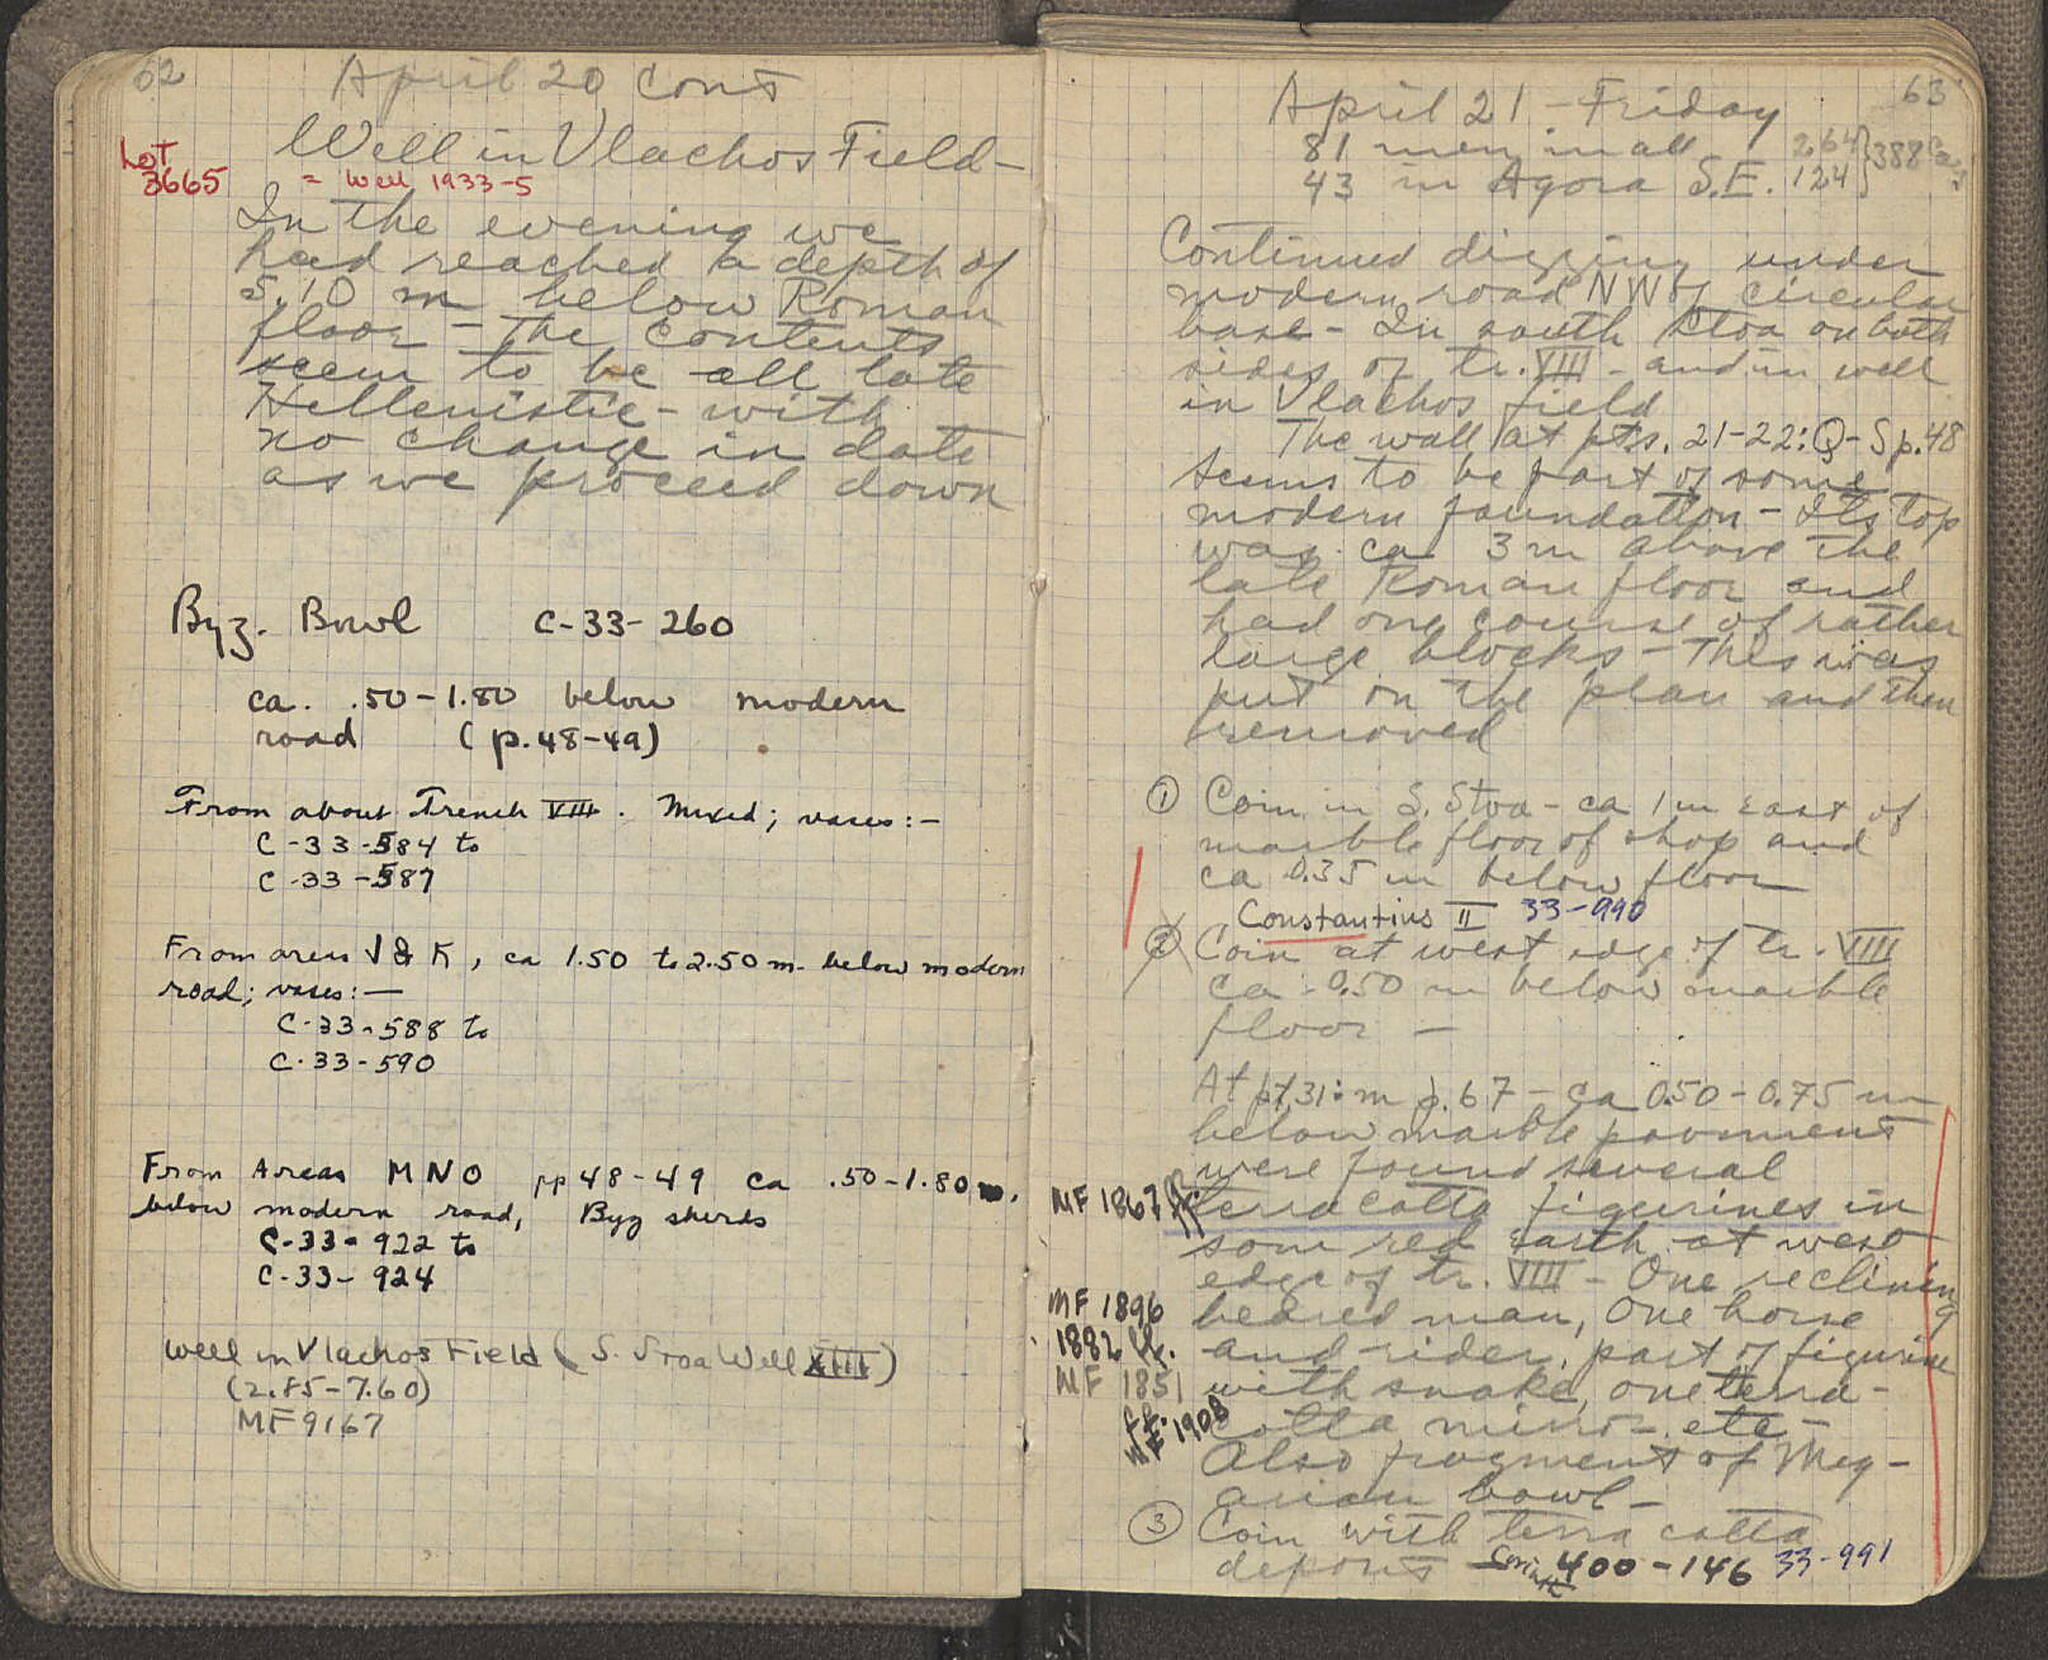 62
April 20 Cont
Lot
3665
Well in Vlachos Field -
= Well 1933-5
In the evening we
had reached a depth of
5.10 m below Roman
floor - The contents
seem to be all late
Hellenistic - with
no change in date
as we proceed down
Byz. Bowl C-33-260
ca. .50-1.80 below modern
road (p.48-49)
From about Trench VIII. Mixed; vases:-
C-33-584 to
C-33-587
From areas J & K, ca 1.50 to 2.50 m. below modern
road; vases:-
C-33-588 to
C-33-590
From Areas MNO pp 48-49 ca .50-1.80 m.
below modern road, Byz sherds
C-33-922 to
C-33-924
Well in Vlachos Field (S. Stoa Well XIII)
(2.85-7.60)
MF 9167
63
April 21 - Friday
81 men in all 264
43 in Agora S.E. 124 } 388
Continued digging under
modern road NW of circular
base - In south Stoa on both
sides of tr. VIII - and in well
in Vlachos field
The wall at pts. 21-22:Q-S p.48
seems to be part of some
modern foundation - Its top
was ca 3 m above the
late Roman floor and
had one course of rather
large blocks - This was
put on the plan and then
removed
① Coin in S. Stoa - ca 1 m east of
marble floor of shop and
ca 0.35 m below floor
Constantius II 33-990
② Coin at west edge of tr. VIII
ca 0.50 m below marble
floor -
At pt 31:m p.67 - ca 0.50-0.75 m
below marble pavement
were found several
MF 1867 ff. terra cotta figurines in
some red earth at west
edge of tr. VIII - One reclining
MF 1896 beared man, one horse
1882 ff. and rider, part of figurine
MF 1851 with snake, one terra-
ff. MF 1908 cotta mirror - etc -
Also fragment of Meg-
arian bowl -
③ Coin with terra cotta
deposit Corinth 400-146 33-991